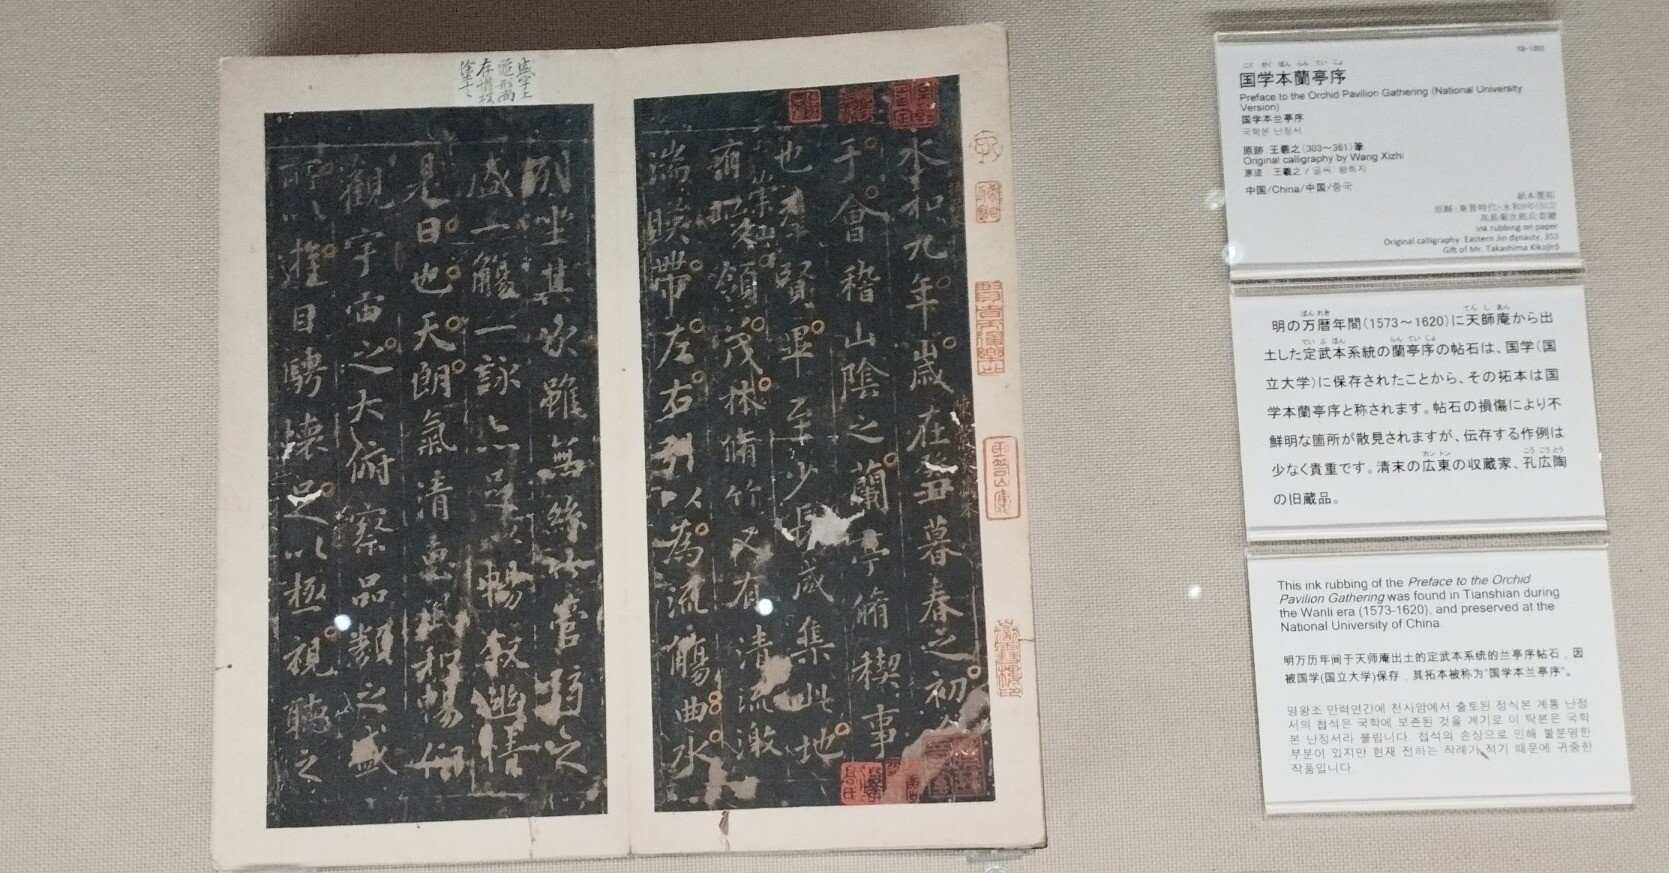 永和九年歲在癸丑暮春之初
于會稽山陰之蘭亭脩禊事
也羣賢畢至少長咸集此地
有崇山峻領茂林脩竹又有清流激
湍暎帶左右引以為流觴曲水
盛字上
存惜被
列坐其次雖無絲竹管弦之
盛一觴一詠亦足以暢敘幽情
是日也天朗氣清惠風和暢仰
觀宇宙之大俯察品類之盛
所以遊目騁懷足以極視聽之
TB-1353
こく がく ぼん らん てい じょ
国学本蘭亭序
Preface to the Orchid Pavilion Gathering (National University
Version)
国学本兰亭序
국학본 난정서
原跡 王羲之(303～361)筆
Original calligraphy by Wang Xizhi
原迹 王羲之 / 글씨 왕희지
中国/China/中国/중국
紙本墨拓
原跡・東晋時代・永和9年(353)
高島菊次郎氏寄贈
Ink rubbing on paper
Original calligraphy: Eastern Jin dynasty, 353
Gift of Mr. Takashima Kikujirō
ばんれき てんしあん
明の万暦年間(1573～1620)に天師庵から出
ていぶぼん らんていじょ
土した定武本系統の蘭亭序の帖石は、国学(国
立大学)に保存されたことから、その拓本は国
学本蘭亭序と称されます。帖石の損傷により不
鮮明な箇所が散見されますが、伝存する作例は
カントン こうこうとう
少なく貴重です。清末の広東の収蔵家、孔広陶
の旧蔵品。
This ink rubbing of the Preface to the Orchid
Pavilion Gathering was found in Tianshian during
the Wanli era (1573-1620), and preserved at the
National University of China.
明万历年间于天师庵出土的定武本系统的兰亭序帖石，因
被国学(国立大学)保存，其拓本被称为“国学本兰亭序”。
명왕조 만력연간에 천사암에서 출토된 정식본 계통 난정
서의 첩석은 국학에 보존된 것을 계기로 이 탁본은 국학
본 난정서라 불립니다. 첩석의 손상으로 인해 불분명한
부분이 있지만 현재 전하는 작례가 적기 때문에 귀중한
작품입니다.